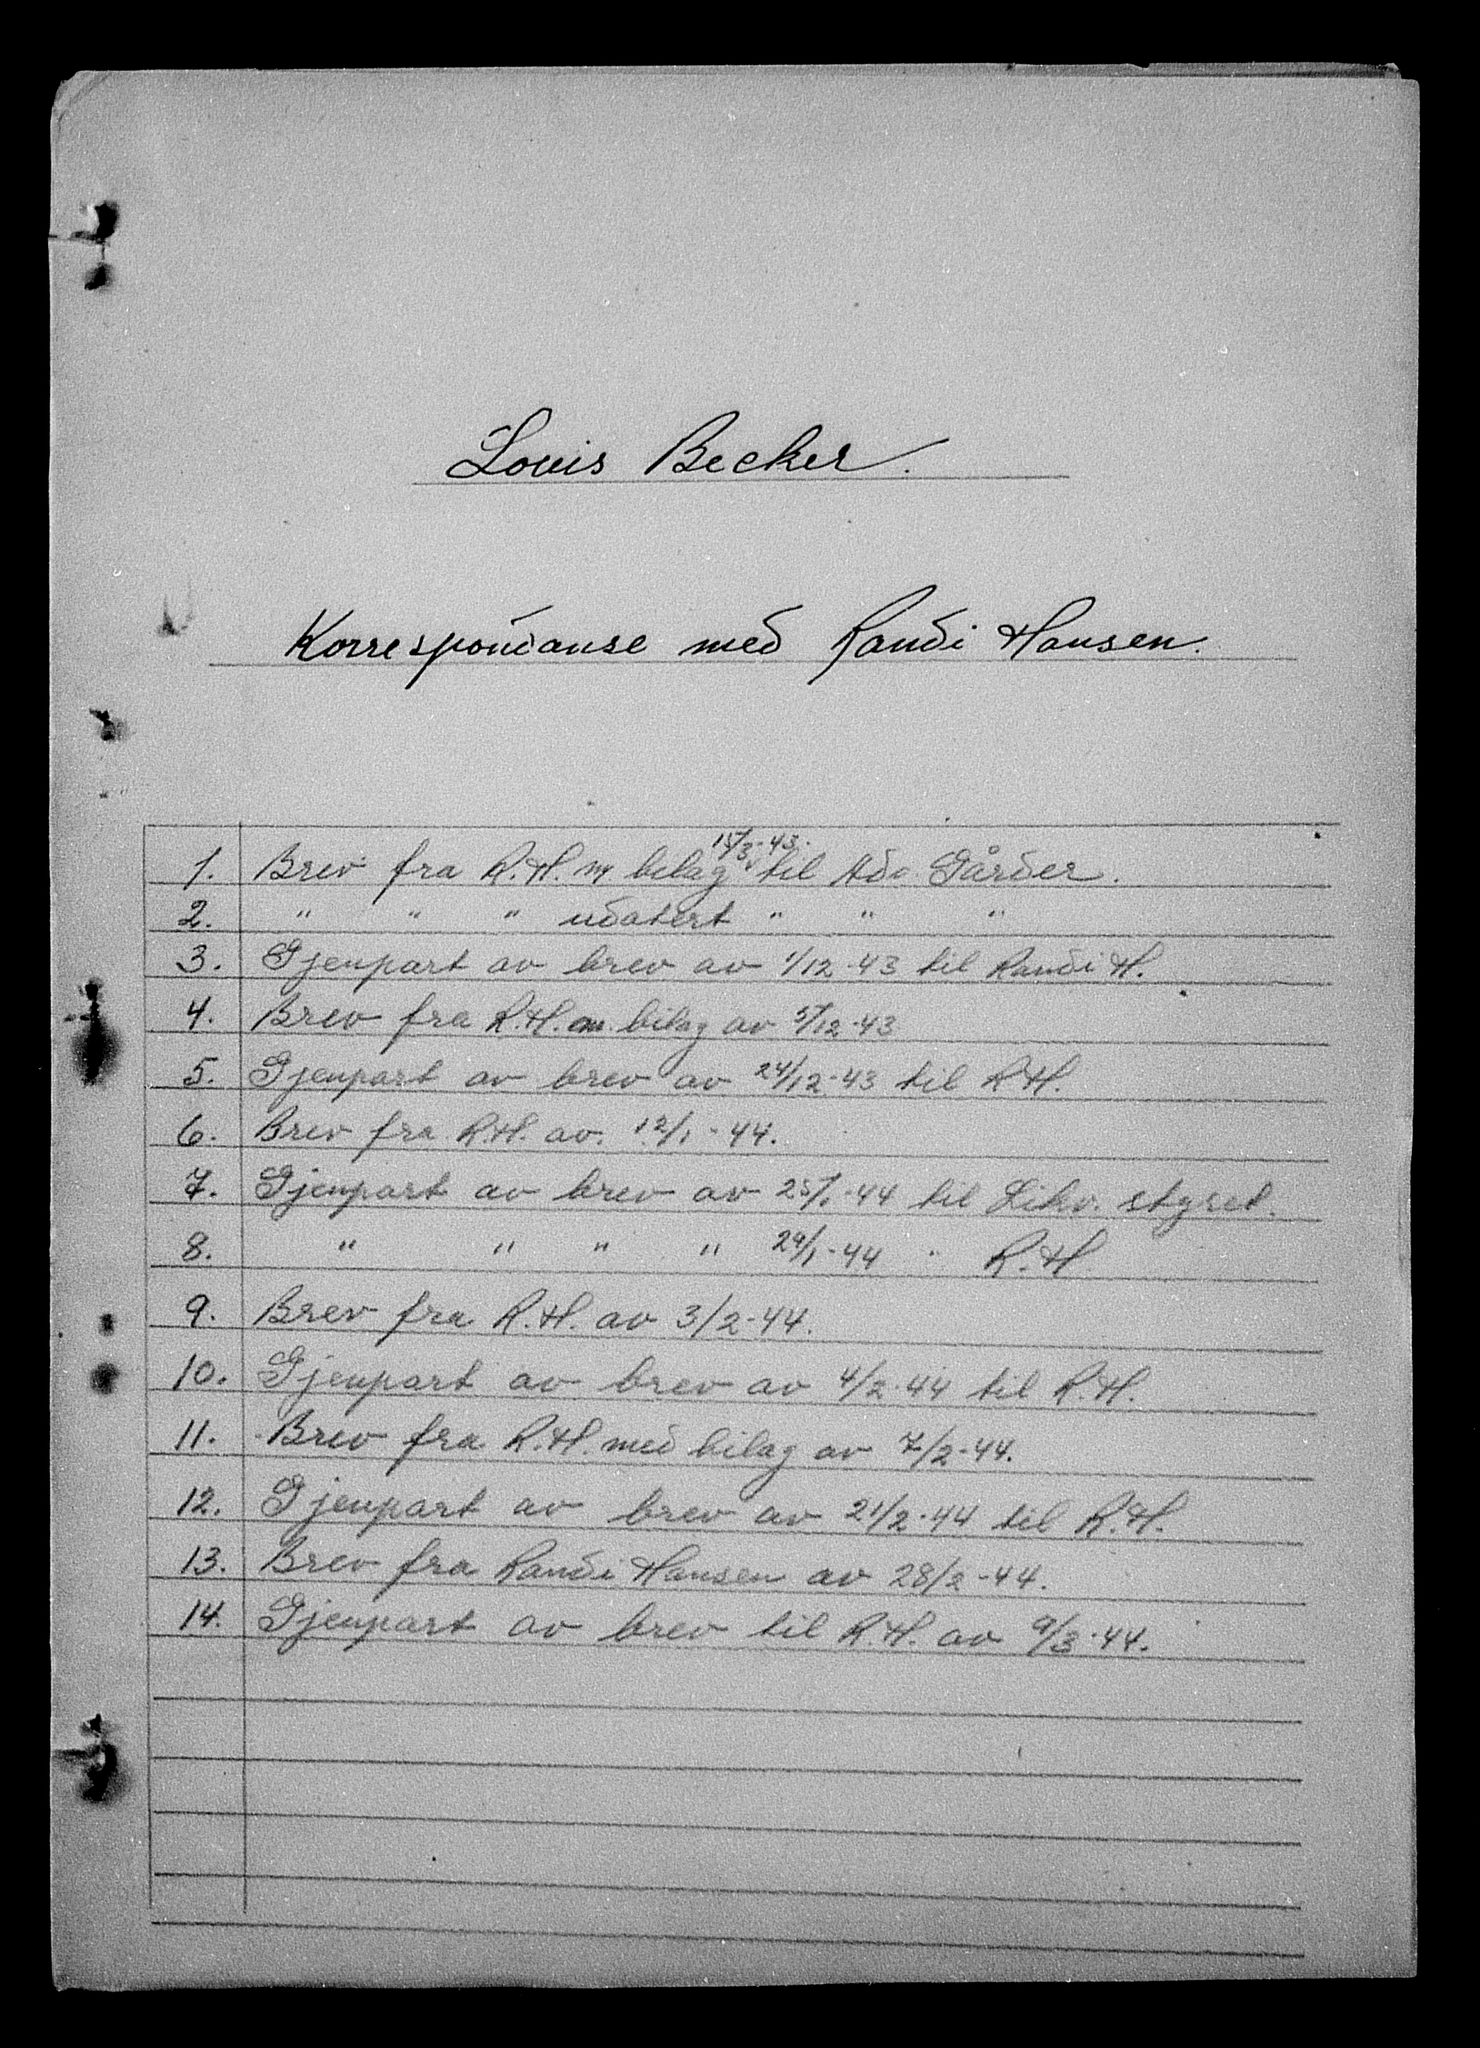 Louis Becker.
Korrespondanse med Randi Hansen.
15/3-43.
1. Brev fra R.H. m/ bilag til Adv. Gårder.
2. " " " udatert " " "
3. Gjenpart av brev av 1/12-43 til Randi H.
4. Brev fra R.H. m. bilag av 5/12-43
5. Gjenpart av brev av 24/12-43 til R.H.
6. Brev fra R.H. av. 12/1-44.
7. Gjenpart av brev av 25/1-44 til Likv. styret.
8. " " " " 29/1-44 " R.H
9. Brev fra R.H. av 3/2-44.
10. Gjenpart av brev av 4/2-44 til R.H.
11. Brev fra R.H. med bilag av 7/2-44.
12. Gjenpart av brev av 21/2-44 til R.H.
13. Brev fra Randi Hansen av 28/2-44.
14. Gjenpart av brev til R.H. av 9/3-44.